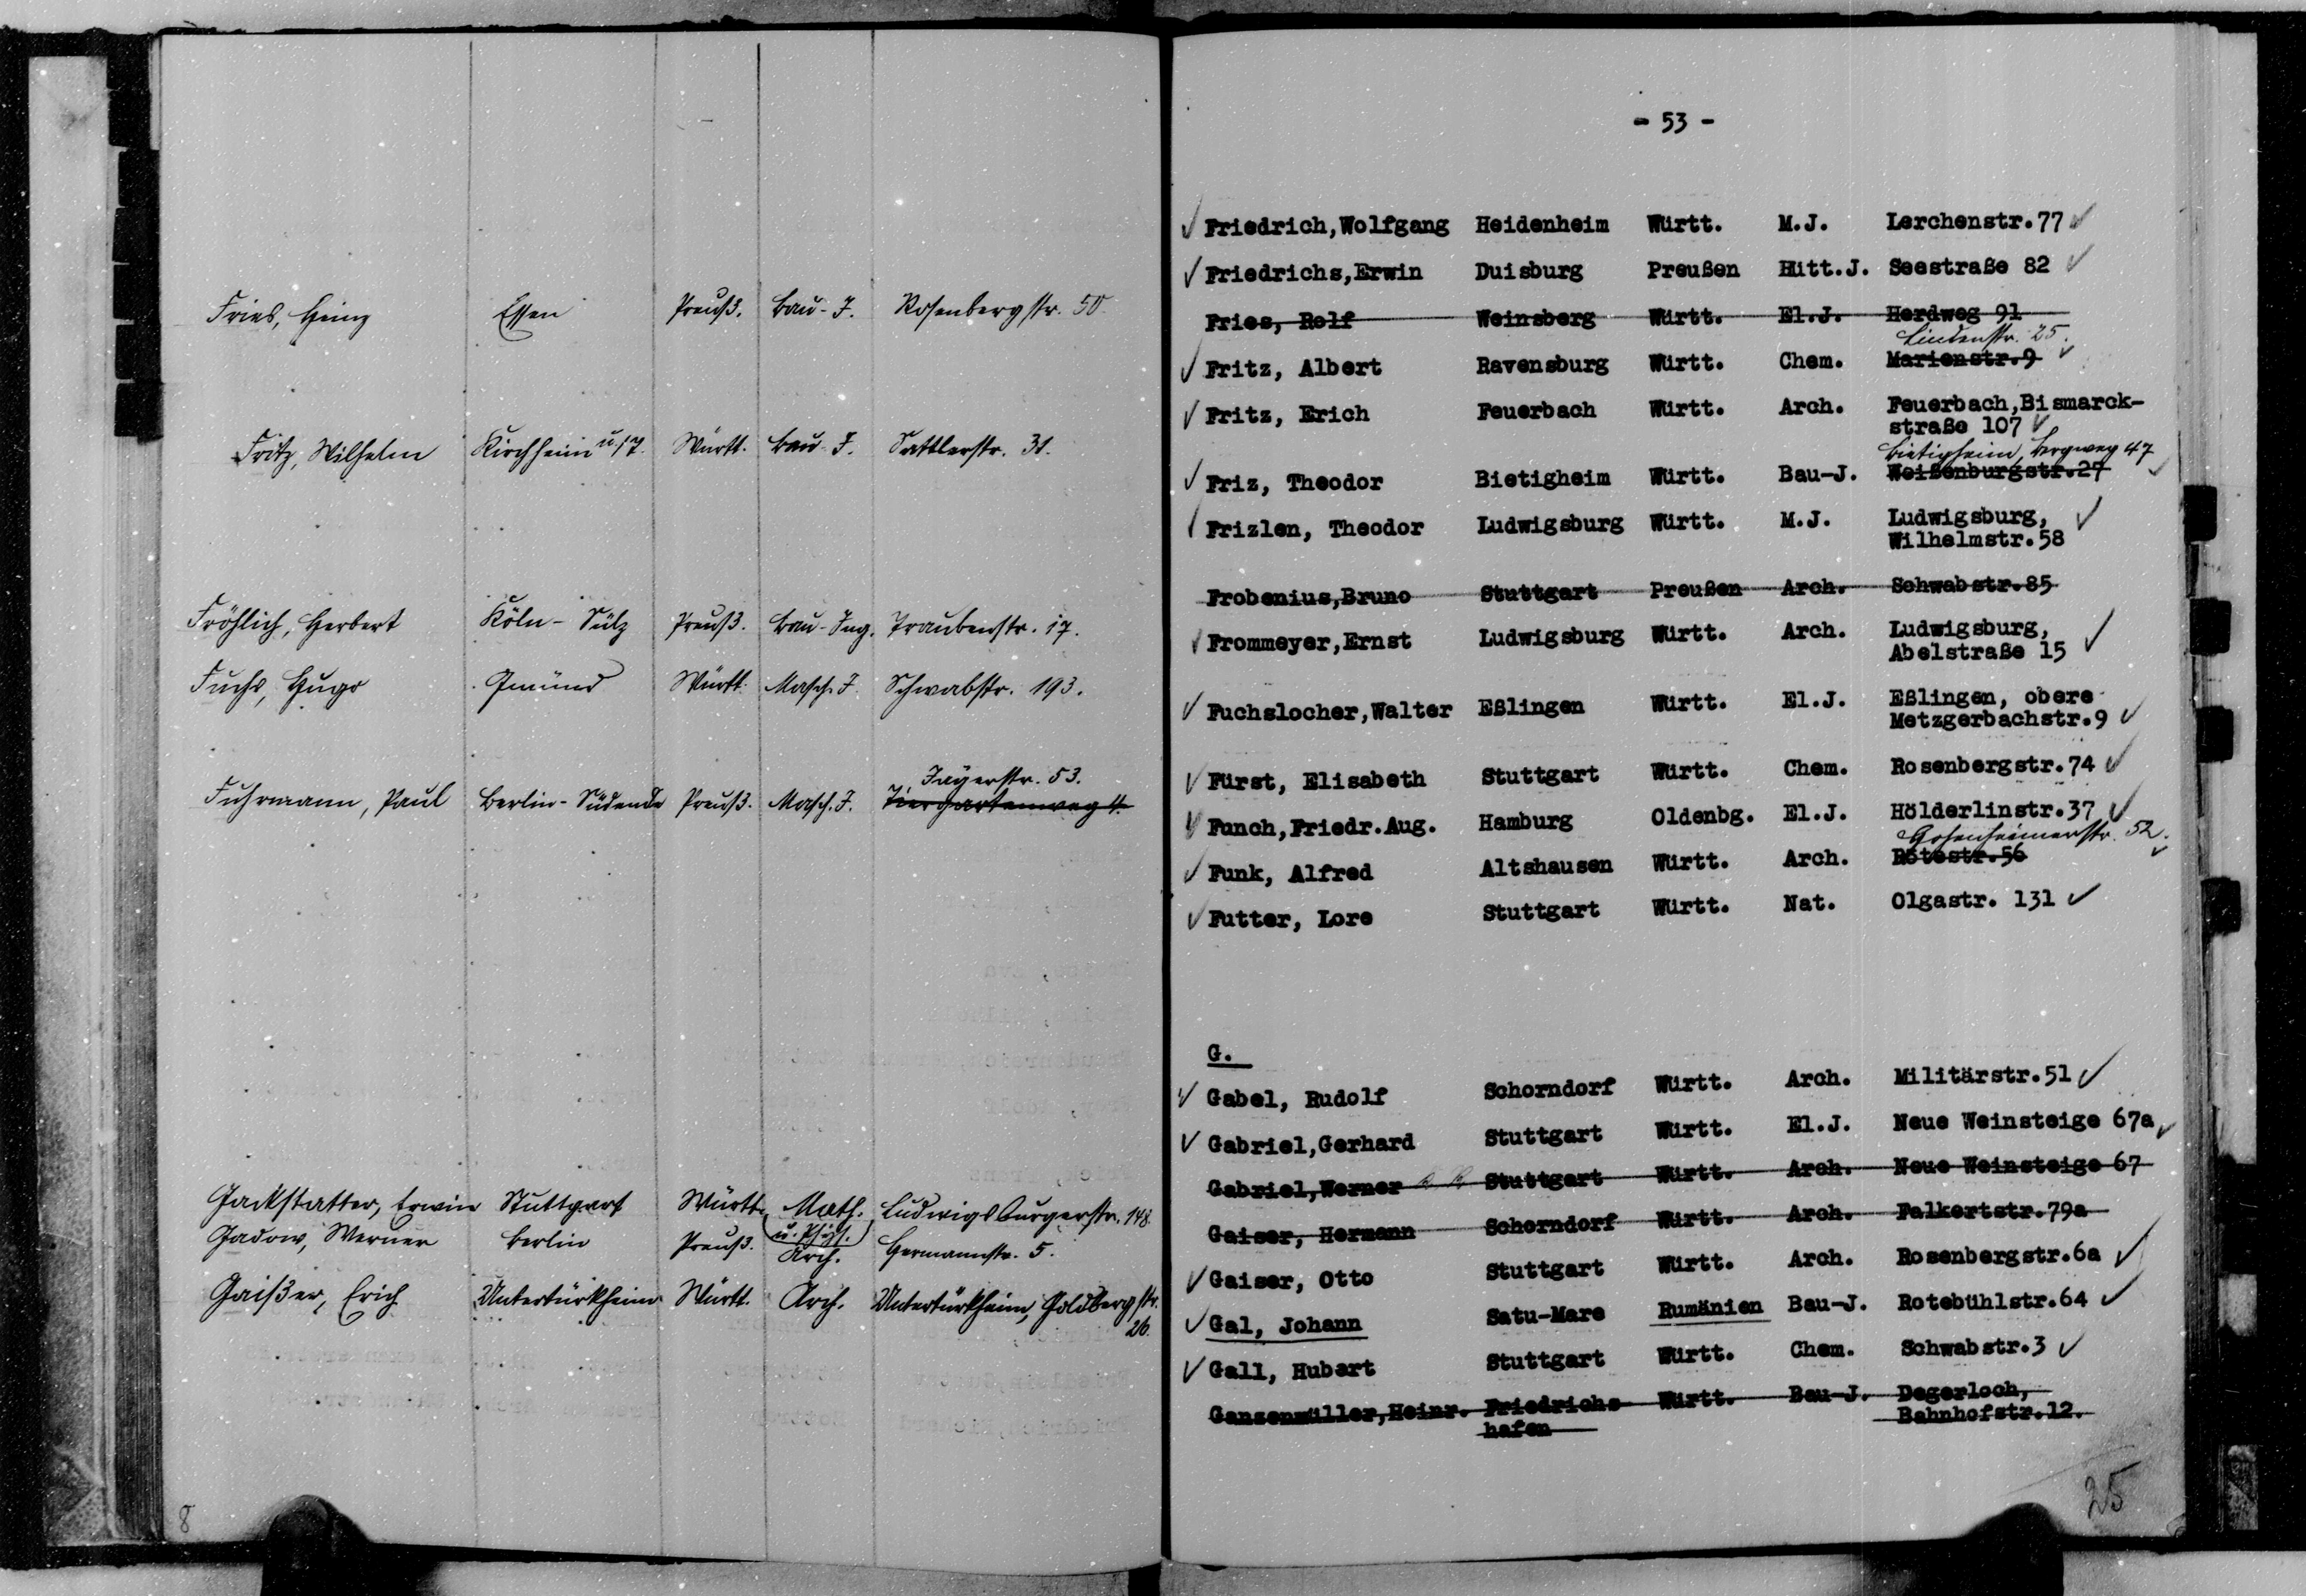 Fries, Heinz Essen Preuß. Bau-J. Rosenbergstr. 50
Fritz, Wilhelm Kirchheim u/T. Württ. Bau-J. Sattlerstr. 31.
Fröhlich, Herbert Köln-Sülz Preuß. Bau-Ing. Traubenstr. 17.
Fuchs, Hugo Gmünd Württ. Masch.J. Schwabstr. 193.
Jägerstr. 53.
Fuhrmann, Paul Berlin-Südende Preuß. Masch.J. Tiergartenweg 4.
Gackstatter, Erwin Stuttgart Württ. Math. Ludwigsburgerstr. 148.
u. Phys.
Gadow, Werner Berlin Preuß. Arch. Hermannstr. 5.
Gaißer, Erich Untertürkheim Württ. Arch. Untertürkheim, Goldbergstr.
26.
8
- 53 -
Friedrich,Wolfgang Heidenheim Württ. M.J. Lerchenstr.77
Friedrichs,Erwin Duisburg Preußen Hütt.J. Seestraße 82
Fries, Rolf Weinsberg Württ. El.J. Herdweg 91
Lindenstr. 25.
Fritz, Albert Ravensburg Württ. Chem. Marienstr.9
Fritz, Erich Feuerbach Württ. Arch. Feuerbach,Bismarck-
straße 107
Bietigheim, Bergweg 47
Friz, Theodor Bietigheim Württ. Bau-J. Weißenburgstr.27
Frizlen, Theodor Ludwigsburg Württ. M.J. Ludwigsburg,
Wilhelmstr.58
Frobenius,Bruno Stuttgart Preußen Arch. Schwabstr.85
Frommeyer,Ernst Ludwigsburg Württ. Arch. Ludwigsburg,
Abelstraße 15
Fuchslocher,Walter Eßlingen Württ. El.J. Eßlingen, obere
Metzgerbachstr.9
Fürst, Elisabeth Stuttgart Württ. Chem. Rosenbergstr.74
Funch,Friedr.Aug. Hamburg Oldenbg. El.J. Hölderlinstr.37
Hohenheimerstr. 52.
Funk, Alfred Altshausen Württ. Arch. Rötestr.56
Futter, Lore Stuttgart Württ. Nat. Olgastr. 131
G.
Gabel, Rudolf Schorndorf Württ. Arch. Militärstr.51
Gabriel,Gerhard Stuttgart Württ. El.J. Neue Weinsteige 67a
Gabriel,Werner Stuttgart Württ. Arch. Neue Weinsteige 67
Gaiser, Hermann Schorndorf Württ. Arch. Falkertstr.79a
Gaiser, Otto Stuttgart Württ. Arch. Rosenbergstr.6a
Gal, Johann Satu-Mare Rumänien Bau-J. Rotebühlstr.64
Gall, Hubert Stuttgart Württ. Chem. Schwabstr.3
Ganzenmüller,Heinr. Friedrichs- Württ. Bau-J. Degerloch,
hafen Bahnhofstr.12.
25